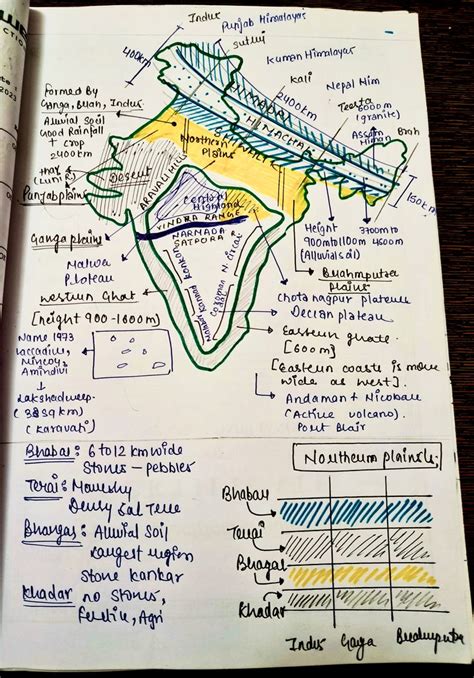 Indus
Punjab Himalayas
Sutluj
400km
Kuman Himalayas
Kali
Nepal Him
2400km
Teesta
6000m
(granite)
Assam
Himan
Brah
150km
HIMADRI
HIMACHAL
SHIVALIK
Formed By
Ganga, Brah, Indus.
Alluvial Soil
Good Rainfall
+ crop
2400km
Thar
(LUNI R)
Punjab plains
Northern
Plains
Desert
ARAVALI HILLS
Central
Highland
VINDYA RANGE
NARMADA R
SATPURA
Konkan
Kannad
Malabar
Coroman
N. Circar
Ganga plains
Malwa
Plateau
Western Ghat
[height 900-1600m]
Height 3700m to
900m to 1100m 4500m
(Alluvial soil)
Brahmputra
Plains
Chota nagpur plateau
Deccan plateau
Eastern ghats
[600m]
[Eastern coasts is more
wide as west].
Andaman + Nicobar
(Active volcano).
Port Blair
Name 1973
Laccadive,
Minicoy,
Amindivi
Lakshadweep
(32sq km)
(Karavati)
Bhabar: 6 to 12 km wide
Stones - pebbles
Terai: Marshy
Densy Sal Tree
Bhangar: Alluvial Soil
Largest region
Stone kankar
Khadar no stones,
Fertile, Agri
Northern plains:
Bhabar
Terai
Bhagar
Khadar
Indus Ganga Brahmputra